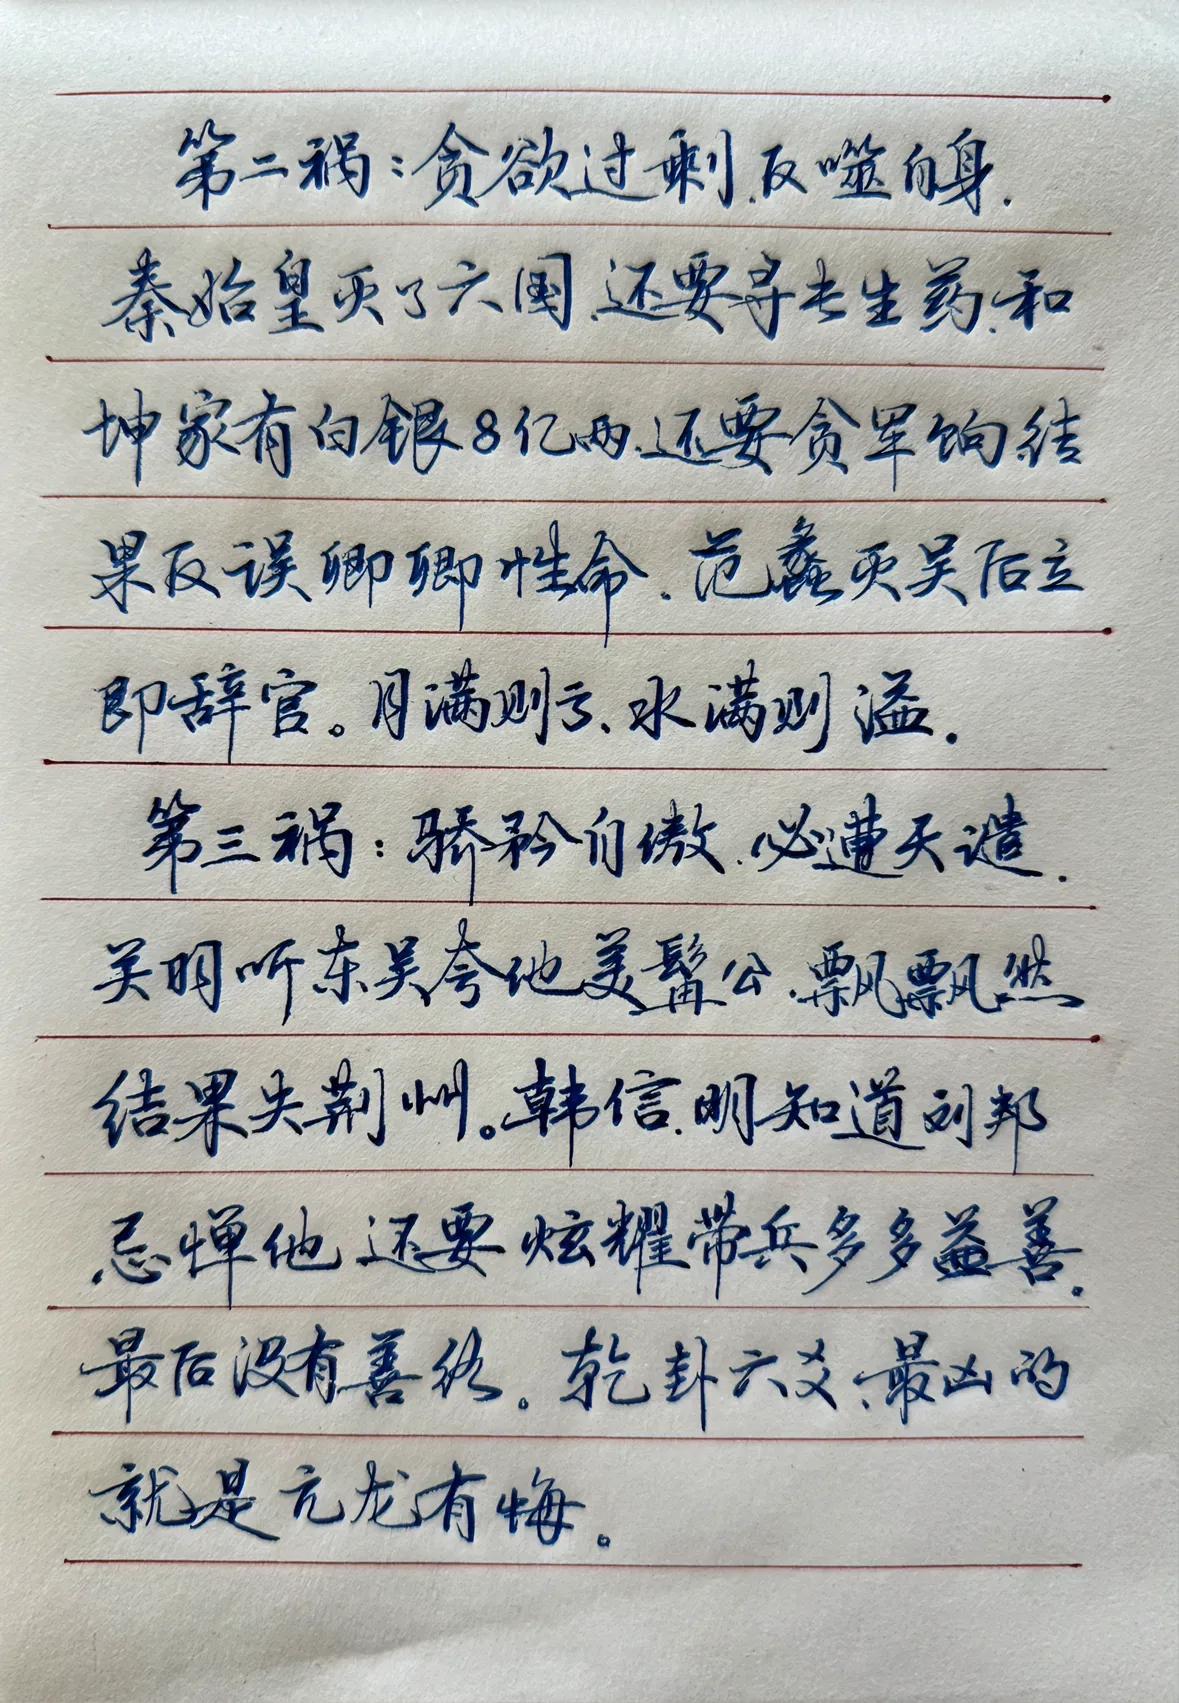 第二祸：贪欲过剩，反噬自身．
秦始皇灭了六国，还要寻长生药，和
坤家有白银8亿两，还要贪军饷结
果反误卿卿性命．范蠡灭吴后立
即辞官。月满则亏、水满则溢．
第三祸：骄矜自傲，必遭天谴．
关明听东吴夸他美髯公，飘飘然
结果失荆州。韩信，明知道刘邦
忌惮他还要炫耀带兵多多益善．
最后没有善终。乾卦六爻，最凶的
就是亢龙有悔。